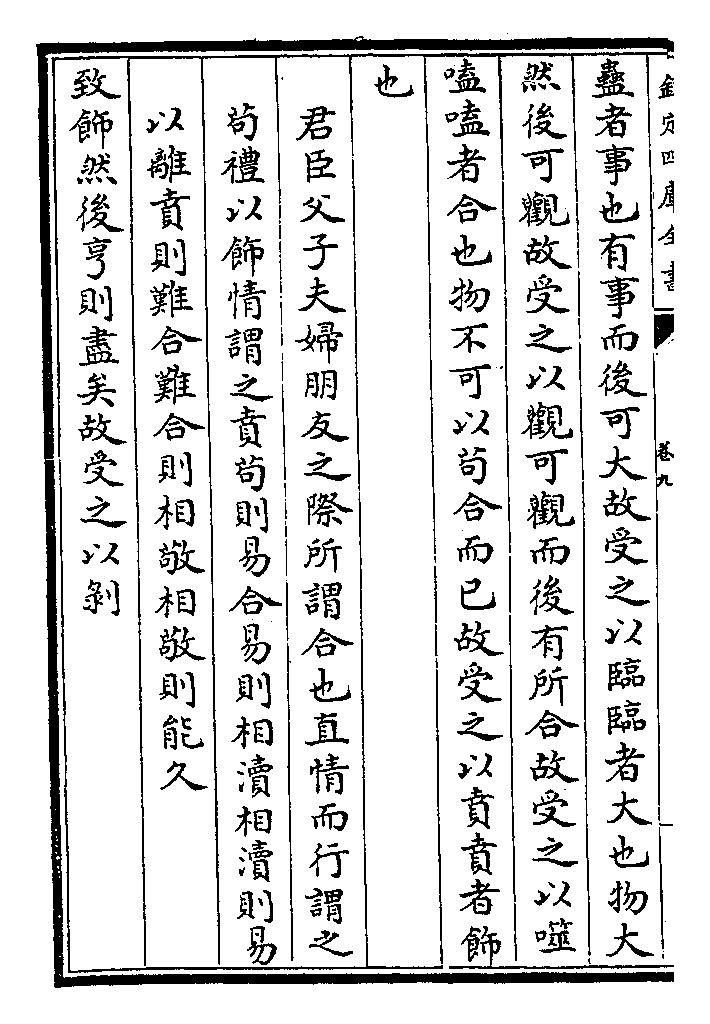 欽定四庫全書
卷九
蠱者事也有事而後可大故受之以臨臨者大也物大
然後可觀故受之以觀可觀而後有所合故受之以噬
嗑嗑者合也物不可以茍合而已故受之以賁賁者飾
也
君臣父子夫婦朋友之際所謂合也直情而行謂之
茍禮以飾情謂之賁茍則易合易則相瀆相瀆則易
以離賁則難合難合則相敬相敬則能久
致飾然後亨則盡矣故受之以剝